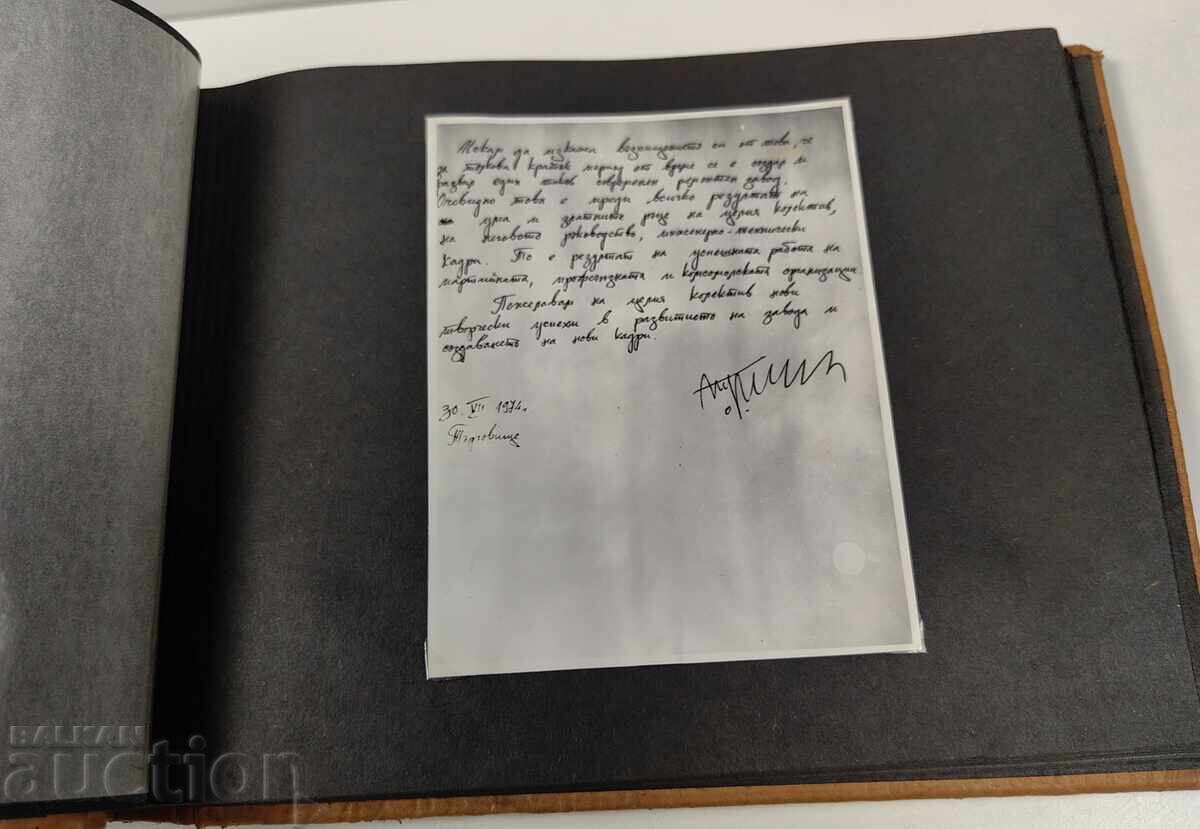 Искам да изкажа възхищението си от това, че
за толкова кратък период от време се е създал и
развил един такъв съвременен ремонтен завод.
Очевидно това е преди всичко резултат на
ума и златните ръце на целия колектив,
на неговото ръководство, инженерно-технически
кадри. То е резултат на успешната работа на
партийната, профсъюзната и комсомолската организации.
Пожелавам на целия колектив нови
творчески успехи в развитието на завода и
създаването на нови кадри.
30. VII 1974г.
Търговище
BALKAN
auction